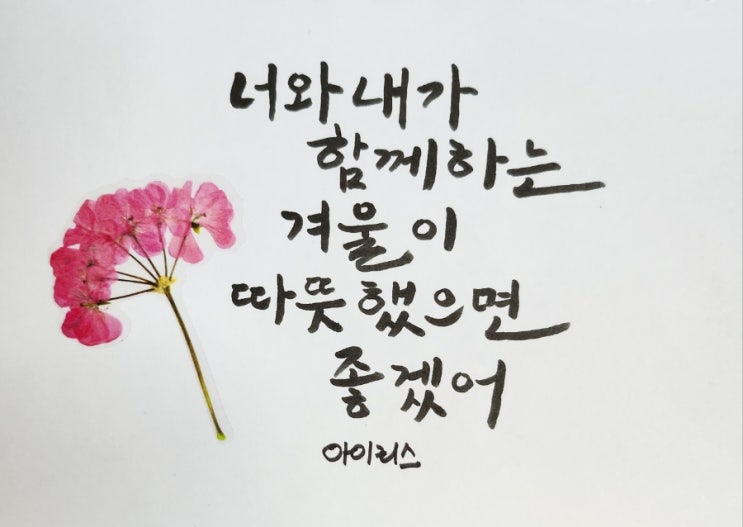 너와 내가
함께하는
겨울이
따뜻했으면
좋겠어
아이리스